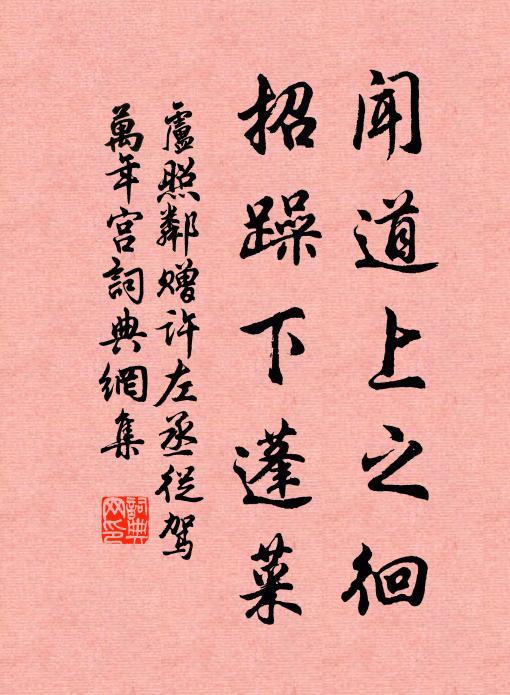 聞道上之徊
招躁下蓬菜
盧照鄰贈许左丞從駕
萬年宫詞典網集
詞典
网印